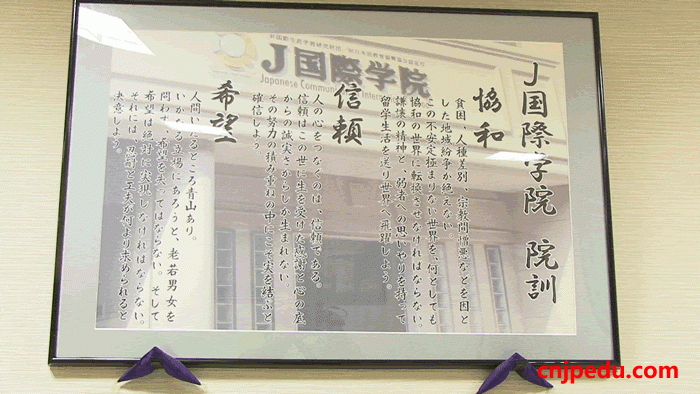 J国際学院 院訓
協和
貧困、人種差別、宗教間憎悪などを因と
した地域紛争が絶えない
この不安定極まりない世界を、何としても
協和の世界に転換させなければならない。
謙譲の精神と、弱者への思いやりを持って
留学生活を送り世界へ飛躍しよう。
信頼
人の心をつなぐのは、信頼である。
信頼はこの世に生を受けた感謝と心の底
からの誠実さからしか生まれない。
その努力の積み重ねの中にこそ実を結ぶと
確信しよう。
希望
人間いたるところ青山あり。
いかなる立場にあろうと、老若男女を
問わず、希望を失ってはならない。そして
希望は絶対に実現しなければならない。
それには、忍耐と工夫が何より求められると
決意しよう。
J国際学院
Japanese Communication International
cnjpedu.com